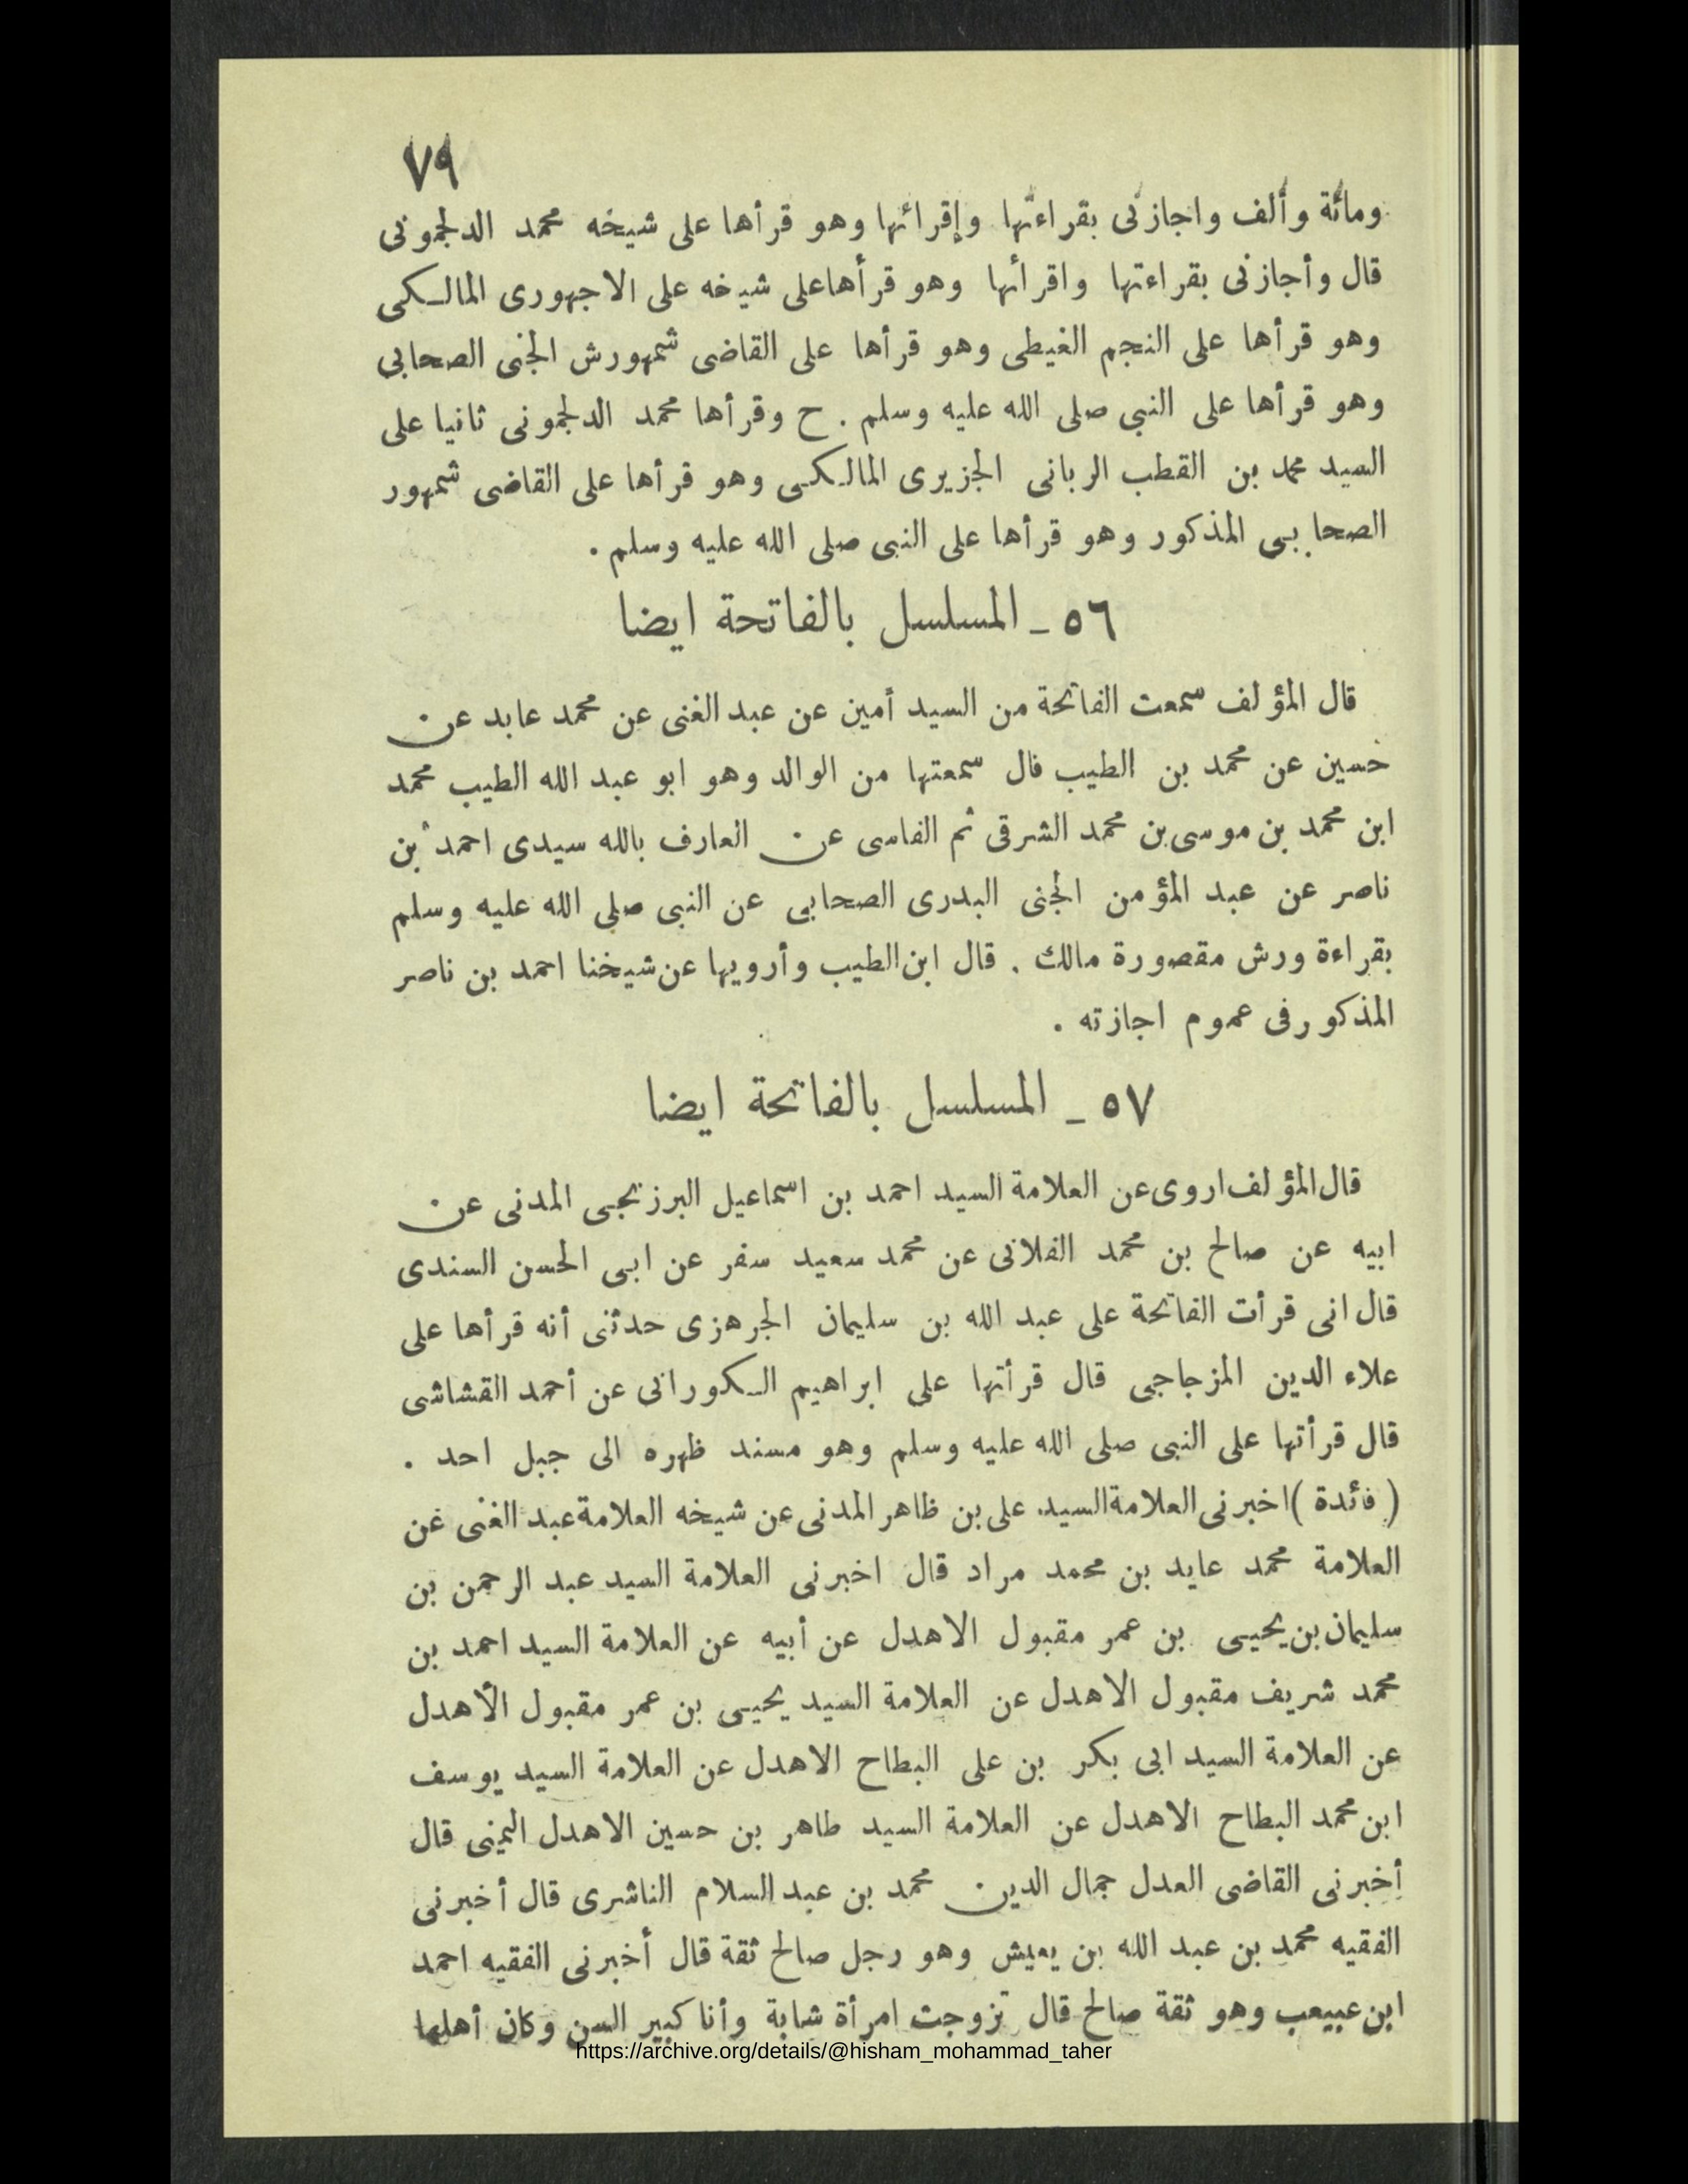 ٧٩
ومائة وألف واجازنى بقراءتها وإقرائها وهو قرأها على شيخه محمد الدلجمونى
قال وأجازنى بقراءتها واقرأئها وهو قرأها على شيخه على الاجهورى المالكى
وهو قرأها على النجم الغيطى وهو قرأها على القاضى شمهورش الجنى الصحابى
وهو قرأها على النبى صلى الله عليه وسلم . ح وقرأها محمد الدلجمونى ثانيا على
السيد محمد بن القطب الربانى الجزيرى المالكى وهو قرأها على القاضى شمهور
الصحابى المذكور وهو قرأها على النبى صلى الله عليه وسلم .
٥٦ ـ المسلسل بالفاتحة ايضا
قال المؤلف سمعت الفاتحة من السيد أمين عن عبد الغنى عن محمد عابد عن
حسين عن محمد بن الطيب قال سمعتها من الوالد وهو ابو عبد الله الطيب محمد
ابن محمد بن موسى بن محمد الشرقى ثم الفاسى عن العارف بالله سيدى احمد بن
ناصر عن عبد المؤمن الجنى البدرى الصحابى عن النبى صلى الله عليه وسلم
بقراءة ورش مقصورة مالك . قال ابن الطيب وأرويها عن شيخنا احمد بن ناصر
المذكور فى عموم اجازته .
٥٧ ـ المسلسل بالفاتحة ايضا
قال المؤلف اروى عن العلامة السيد احمد بن اسماعيل البرزنجى المدنى عن
ابيه عن صالح بن محمد الفلانى عن محمد سعيد سفر عن ابى الحسن السندى
قال انى قرأت الفاتحة على عبد الله بن سليمان الجرهزى حدثنى أنه قرأها على
علاء الدين المزجاجى قال قرأتها على ابراهيم الكورانى عن أحمد القشاشى
قال قرأتها على النبى صلى الله عليه وسلم وهو مسند ظهره الى جبل احد .
( فائدة ) اخبرنى العلامة السيد على بن ظاهر المدنى عن شيخه العلامة عبد الغنى عن
العلامة محمد عايد بن محمد مراد قال اخبرنى العلامة السيد عبد الرحمن بن
سليمان بن يحيى بن عمر مقبول الاهدل عن أبيه عن العلامة السيد احمد بن
محمد شريف مقبول الاهدل عن العلامة السيد يحيى بن عمر مقبول الأهدل
عن العلامة السيد ابى بكر بن على البطاح الاهدل عن العلامة السيد يوسف
ابن محمد البطاح الاهدل عن العلامة السيد طاهر بن حسين الاهدل اليمنى قال
أخبرنى القاضى العدل جمال الدين محمد بن عبد السلام الناشرى قال أخبرنى
الفقيه محمد بن عبد الله بن يعيش وهو رجل صالح ثقة قال أخبرنى الفقيه احمد
ابن عبيعب وهو ثقة صالح قال تزوجت امرأة شابة وأنا كبير السن وكان أهلها
https://archive.org/details/@hisham_mohammad_taher